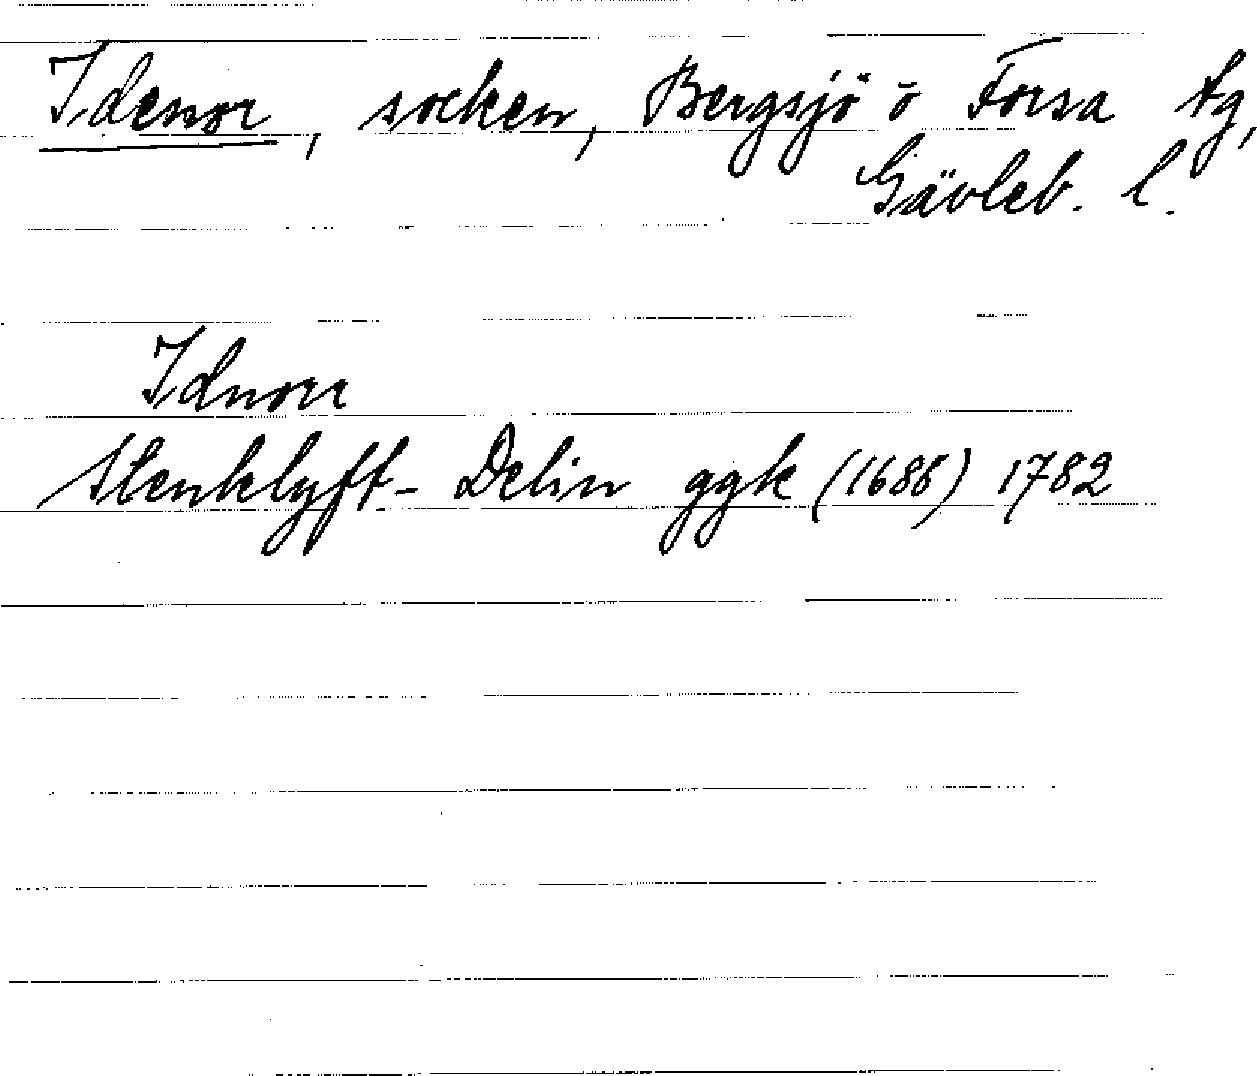 Idenor, socken, Bergsjö o Forsa tg,
Gävleb. l.
Idnorr
Stenklyft- Delin ggk (1688) 1782